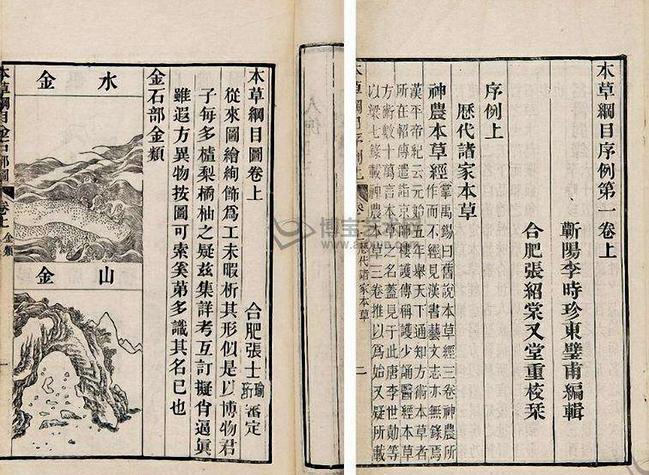 本草綱目序例第一卷上
蘄陽李時珍東璧甫編輯
合肥張紹棠又堂重校栞
序例上
歷代諸家本草
神農本草經
掌禹錫曰舊說本草經三卷神農所
作而不經見漢書藝文志亦無錄焉
漢平帝紀云元始五年舉天下通知方術本草者
所在軺傳遣詣京師樓護傳稱護少誦醫經本草
方術數十萬言本草之名蓋見於此唐李世勣等
以梁七錄載神農本草三卷推以為始又疑所載
本草綱目序例上
歷代諸家本草
一
本草綱目圖卷上
合肥張士瑜珩審定
從來圖繪絢飾為工未暇析其形似是以博物君
子每多樝梨橘柚之疑茲集詳考互訂擬肖逼眞
雖遐方異物按圖可索矣第多識其名已也
金石部金類
水金
山金
本草綱目金石部圖
卷上
金類
一
博宝